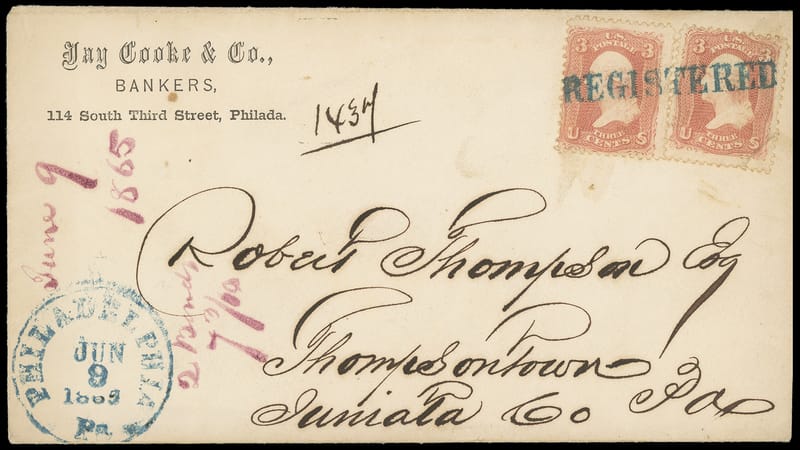 Jay Cooke & Co.,
BANKERS,
114 South Third Street, Philada.
1434
U.S. POSTAGE
3 3
THREE CENTS
U S
U.S. POSTAGE
3 3
THREE CENTS
U S
REGISTERED
June 9
1865
2 Bonds
7 3/10
Robert Thompson Esq
Thompsontown
Juniata Co Pa
PHILADELPHIA
JUN
9
1865
Pa.